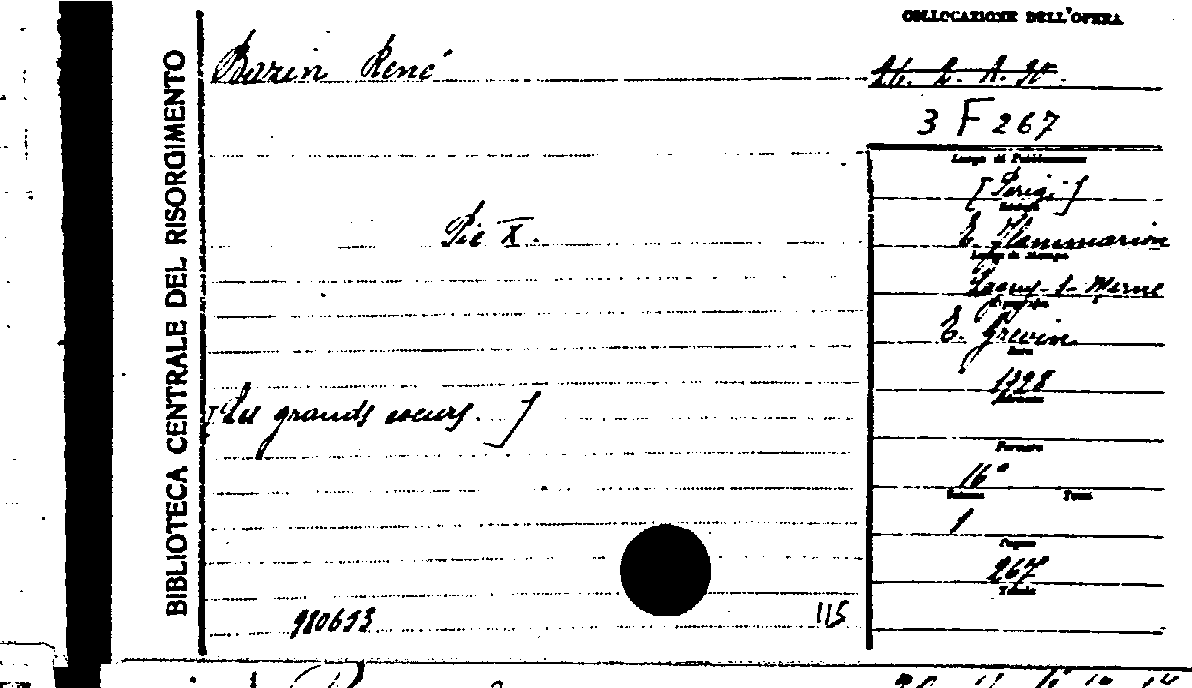 BIBLIOTECA CENTRALE DEL RISORGIMENTO
COLLOCAZIONE DELL'OPERA
Bazin René
26. 2. A. 30.
3 F 267
Luogo di Pubblicazione
[Parigi]
E. Flammarion
Luogo di Stampa
Pie X.
Lagny-s-Marne
E. Grevin
Data
1928
[Les grands coeurs.]
Formato
16°
Volume Tomo
1
Pagine
267
Tavole
980653
115